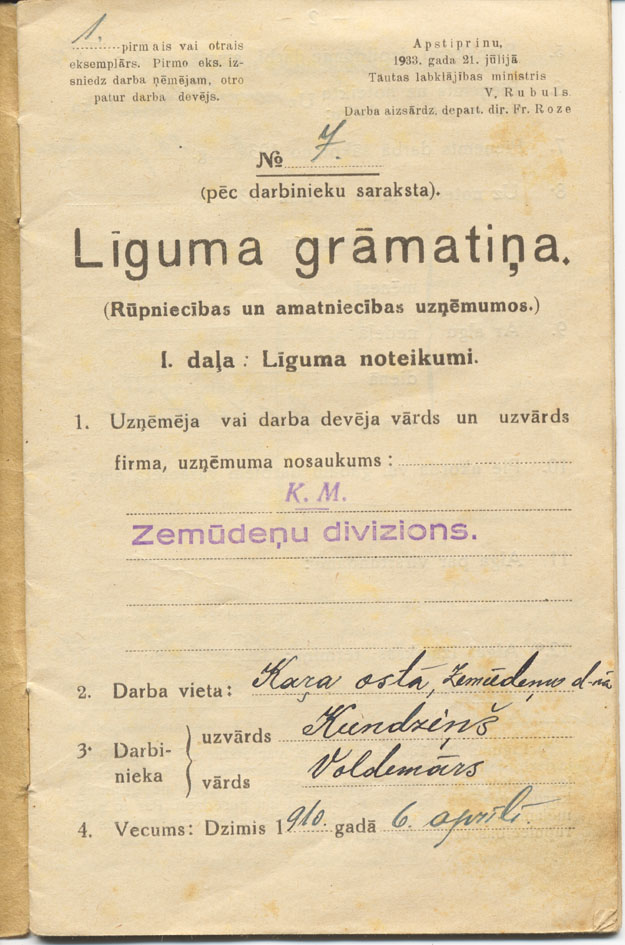 1. pirmais vai otrais
eksemplārs. Pirmo eks. iz-
sniedz darba ņēmējam, otro
patur darba devējs.
Apstiprinu,
1933. gada 21. jūlijā
Tautas labklājības ministris
V. Rubuls.
Darba aizsārdz. depart. dir. Fr. Roze
№ 7.
(pēc darbinieku saraksta).
Līguma grāmatiņa.
(Rūpniecības un amatniecības uzņēmumos.)
I. daļa: Līguma noteikumi.
1. Uzņēmēja vai darba devēja vārds un uzvārds
firma, uzņēmuma nosaukums:
K. M.
Zemūdeņu divizions.
2. Darba vieta: Kaŗa ostā, Zemūdeņu d-nā
3. Darbi-
nieka
uzvārds Kundziņš
vārds Voldemārs
4. Vecums: Dzimis 1910. gadā 6. aprīlī.